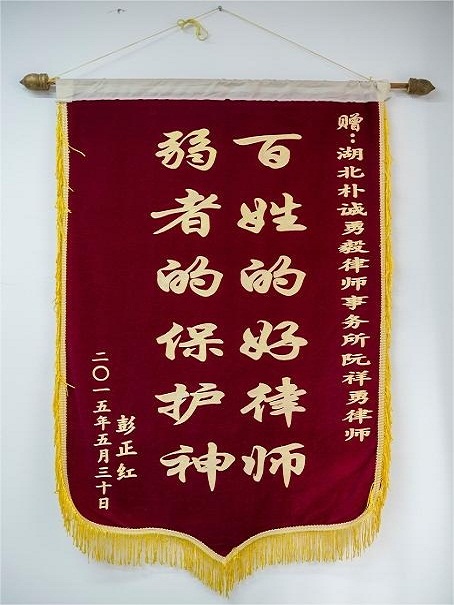 赠:湖北朴诚勇毅律师事务所阮祥勇律师
百姓的好律师
弱者的保护神
彭正红
二〇一五年五月三十日